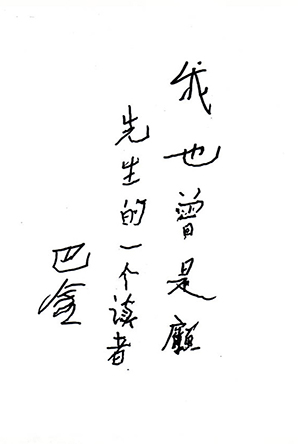 我也曾是顾
先生的一个读者
巴金